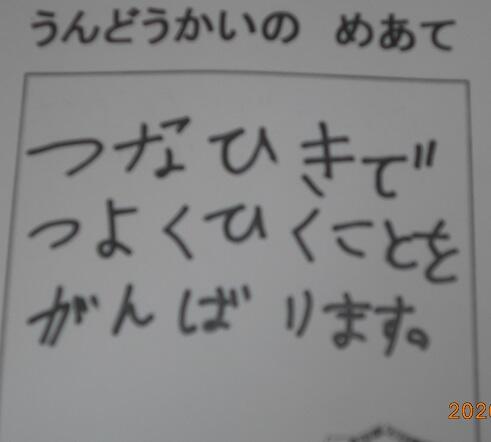 うんどうかいの めあて
つなひきで
つよくひくことを
がんばります。
2020